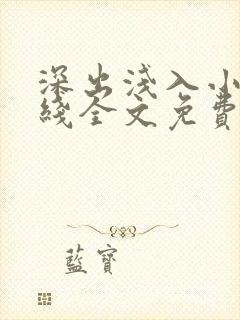 深出淺入小
綫全文免費
藍寶